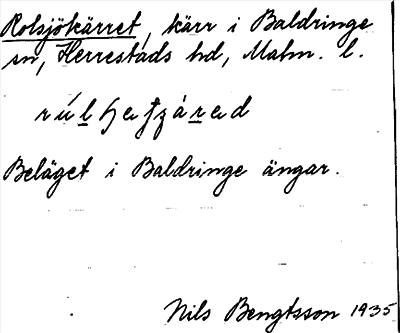 Rolsjökärret, kärr i Baldringe
sn, Herrestads hd, Malm. l.
Beläget i Baldringe ängar.
Nils Bengtsson 1935